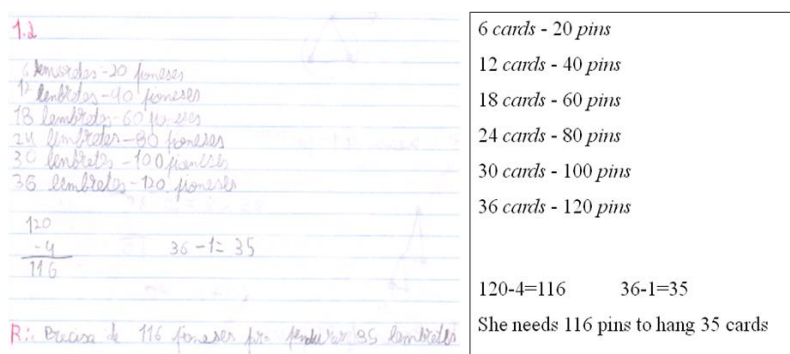 1.2
6 lembretes - 20 pioneses
12 lembretes - 40 pioneses
18 lembretes - 60 pioneses
24 lembretes - 80 pioneses
30 lembretes - 100 pioneses
36 lembretes - 120 pioneses
120
-4
116
36 - 1 = 35
R: Precisa de 116 pioneses pra pendurar 35 lembretes
6 cards - 20 pins
12 cards - 40 pins
18 cards - 60 pins
24 cards - 80 pins
30 cards - 100 pins
36 cards - 120 pins
120-4=116 36-1=35
She needs 116 pins to hang 35 cards